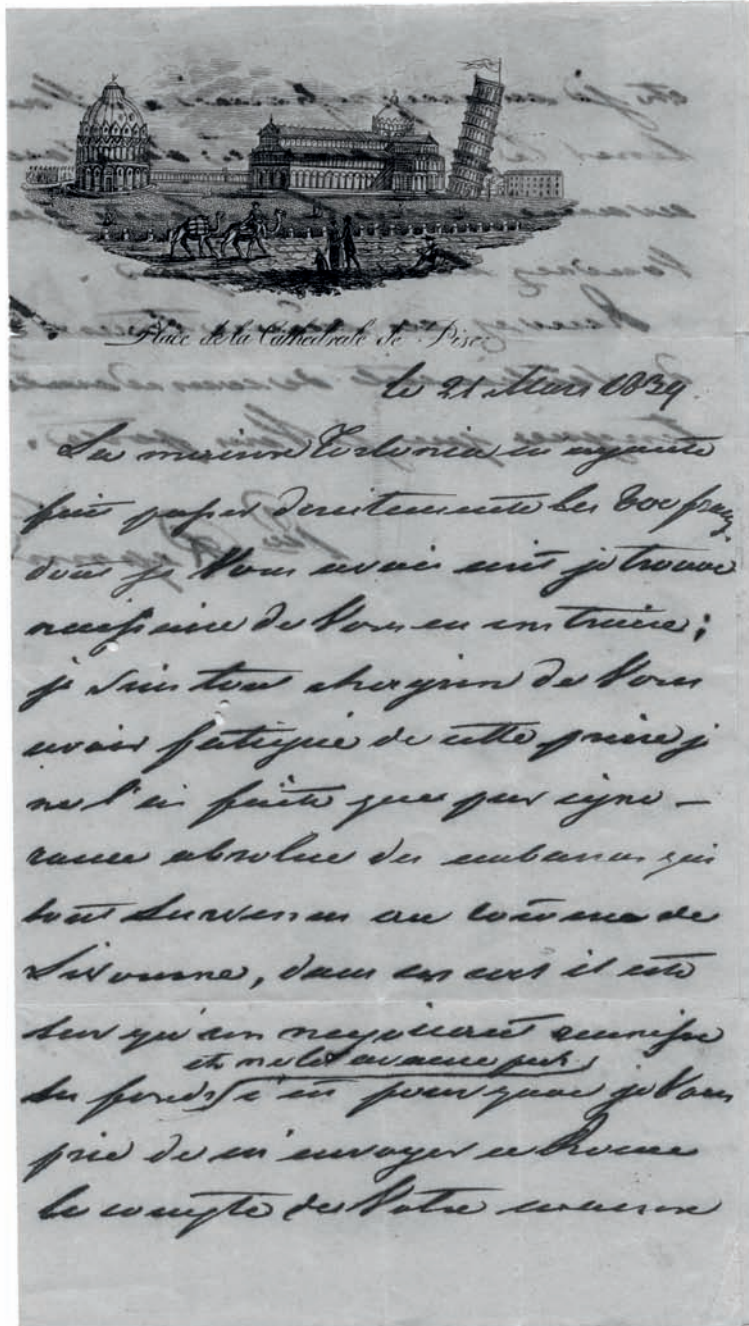 Place de la Cathedrale de Pise
le 21 Mars 1839.
La maison Torlonia ayante
fait passer directemente les francs
dont je Vous avais écrit je trouve
de Vous en instruire ;
je suis tout chagrin de Vous
avoir fatigué de cette prière je
ne l'ai faite que par igno –
rance absolue des embarras qui
sont survenus au commerce de
Livourne, dans ces cas il este
sur qu'un negociant reunisse
et ne les avance pas
ses fonds c'est pourquoi je Vous
prie de m'envoyer a Rome
le compte de Votre maison